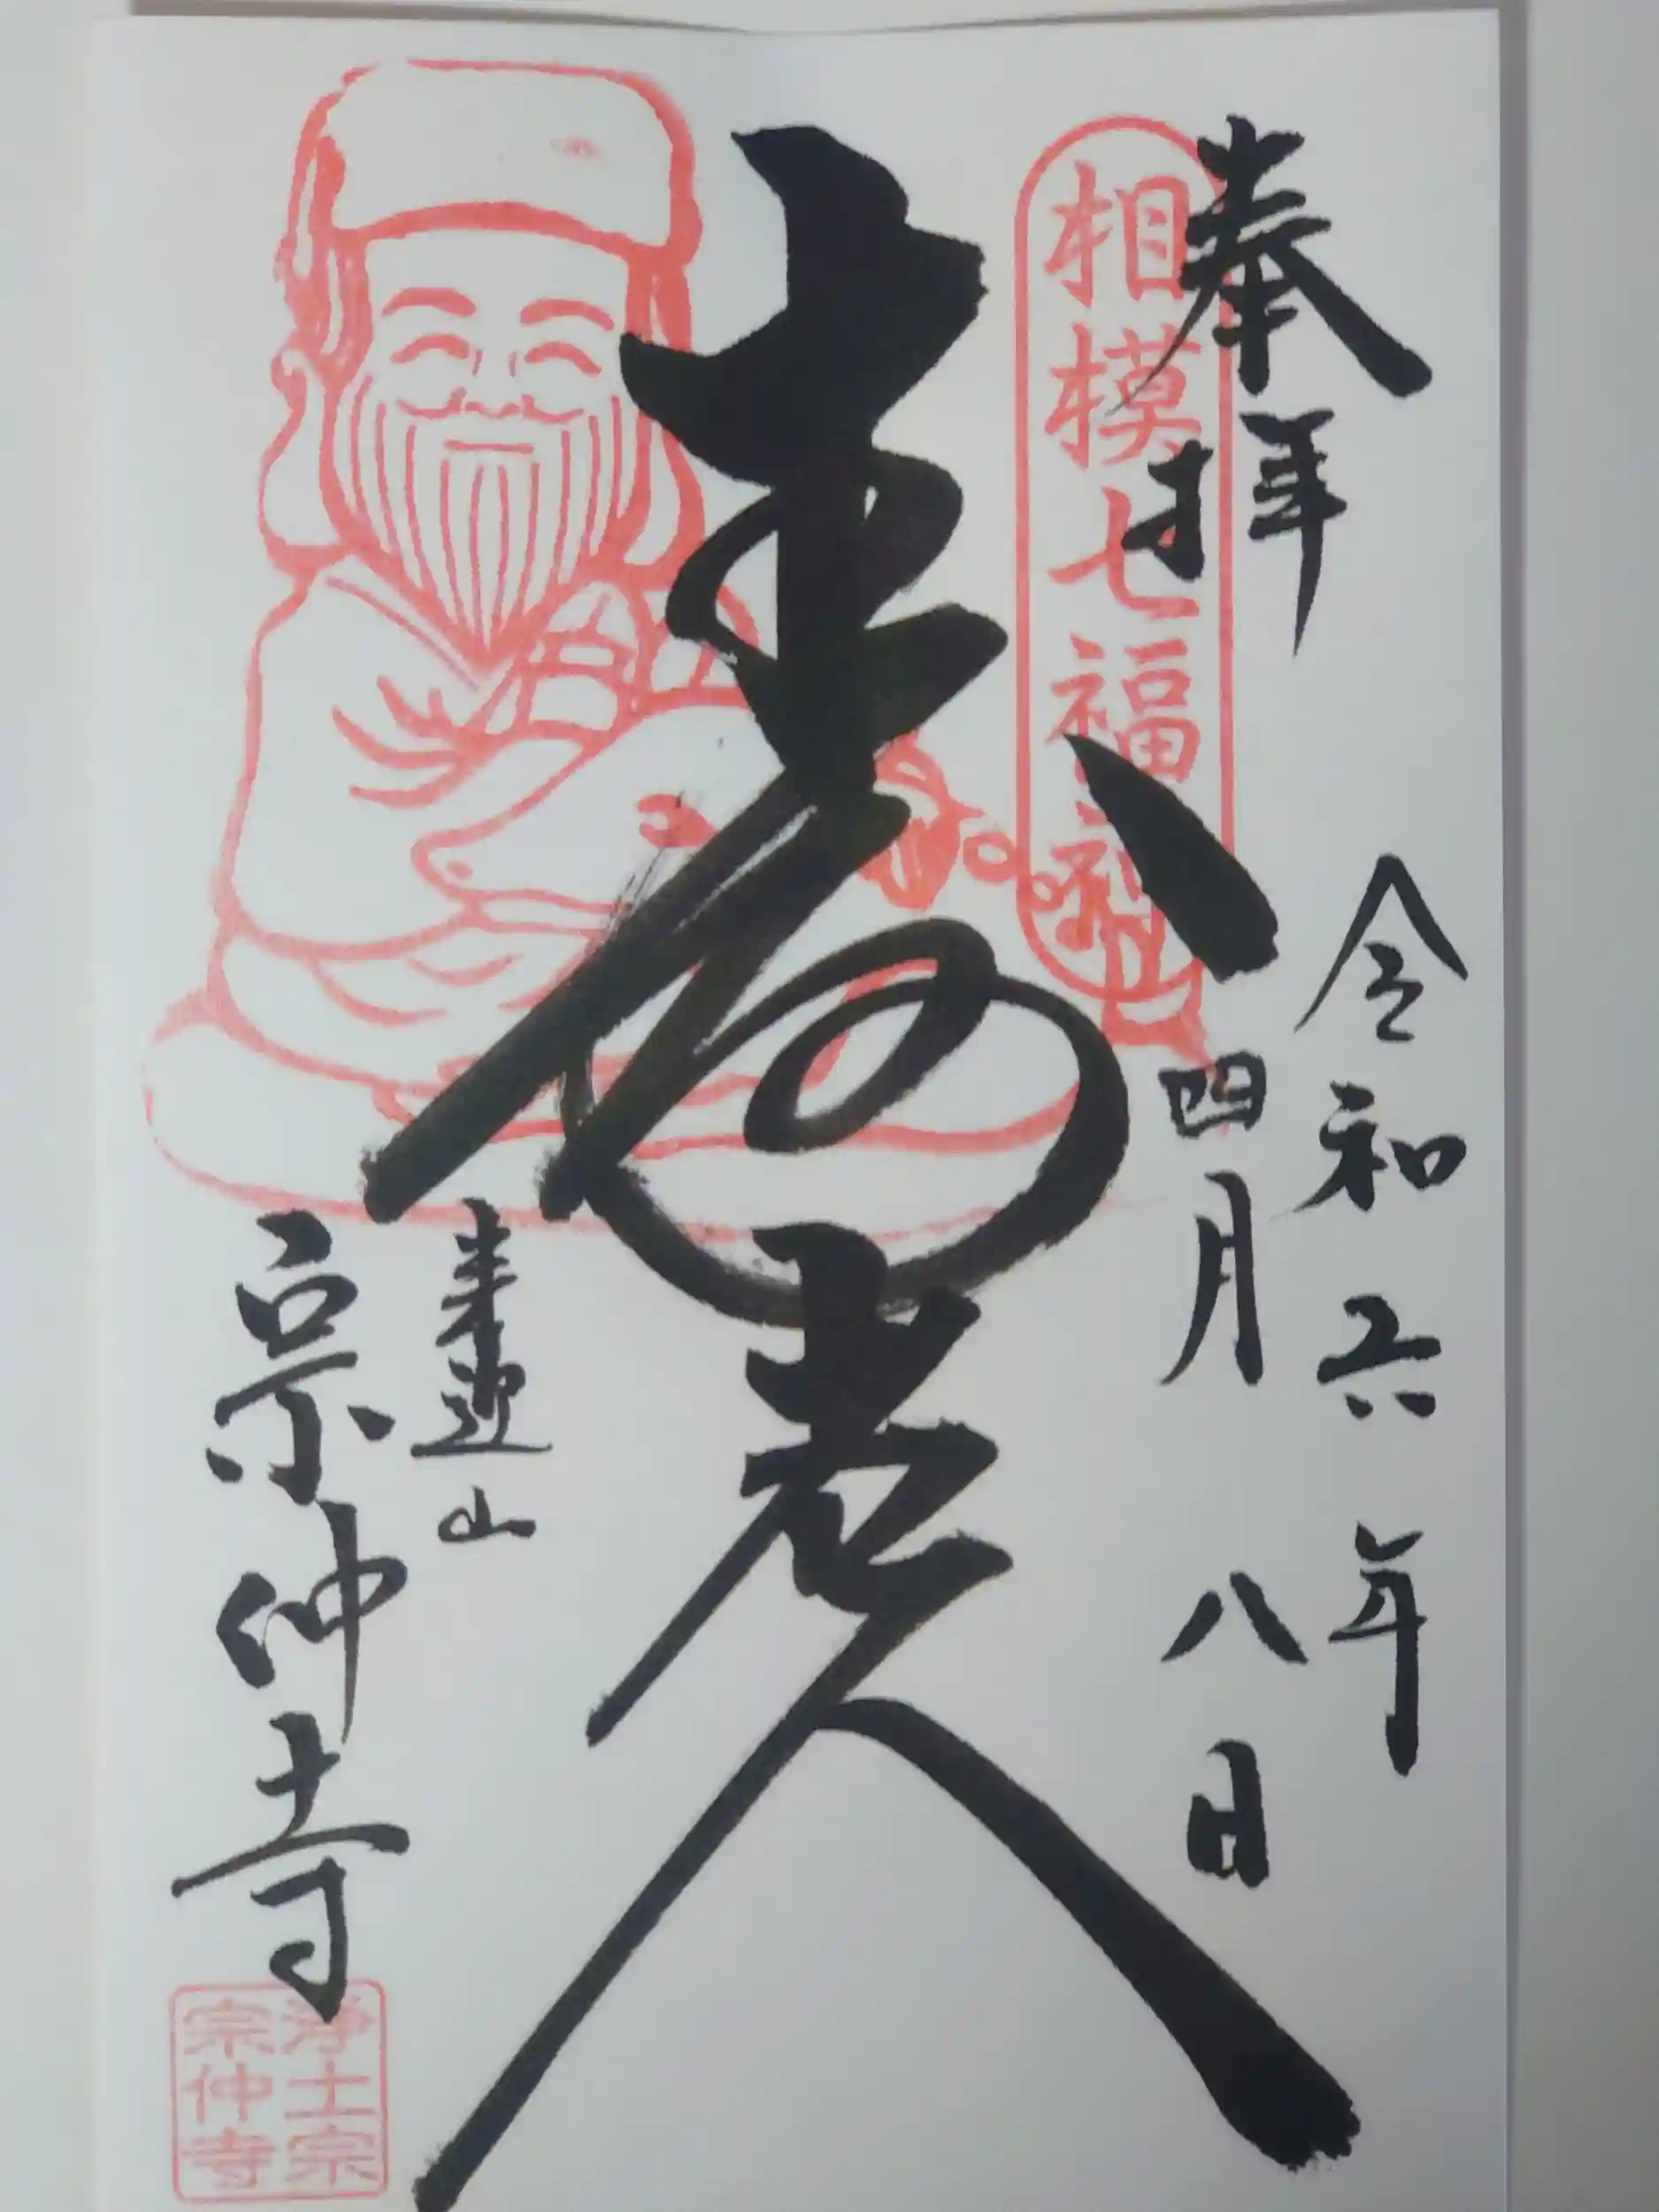 奉拝
相模七福神
令和六年
四月八日
寿老人
来迎山
宗仲寺
浄土宗
宗仲寺